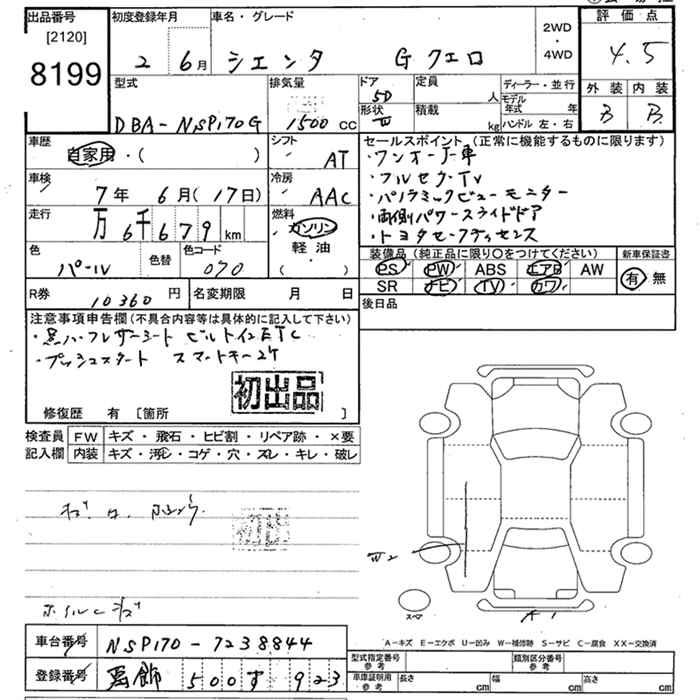 出品番号 初度登録年月 車名・グレード 評価点
[2120]
8199
2 6月 シエンタ G クエロ 2WD・4WD 4.5
型式 排気量 ドア 定員 ディーラー・並行 外装 内装
5D 人 モデル年式 年 B B
DBA-NSP170G 1500 cc 形状 積載 kg ハンドル 左・右
車歴 シフト セールスポイント (正常に機能するものに限ります)
自家用・( ) AT ・ワンオーナー車
車検 冷房 ・フルセグTV
7年 6月 (17日) AAC ・パノラミックビューモニター
走行 燃料 ・両側パワースライドドア
万 6千679 km ガソリン ・トヨタセーフティセンス
軽油
色 色替 色コード ( )
パール 070
装備品 (純正品に限り○をつけてください) 新車保証書
PS PW ABS エアB AW 有 無
SR ナビ TV カワ
R券 10360円 名変期限 月 日 後日品
注意事項申告欄 (不具合内容等は具体的に記入して下さい)
・黒ハーフレザーシート ビルトインETC
・プッシュスタート スマートキー2ケ
初出品
修復歴 有 [箇所 ]
検査員 FW キズ・飛石・ヒビ割・リペア跡・×要
記入欄 内装 キズ・汚シ・コゲ・穴・スレ・キレ・破レ
初出品
W2
ホイルCキズ
スペア
A1
A-キズ E-エクボ U-凹み W-補修跡 S-サビ C-腐食 XX-交換済
車台番号 NSP170-7238844
登録番号 葛飾 500 す 923
型式指定番号 参考 類別区分番号 参考
車庫証明用 参考 長さ cm 幅 cm 高さ cm